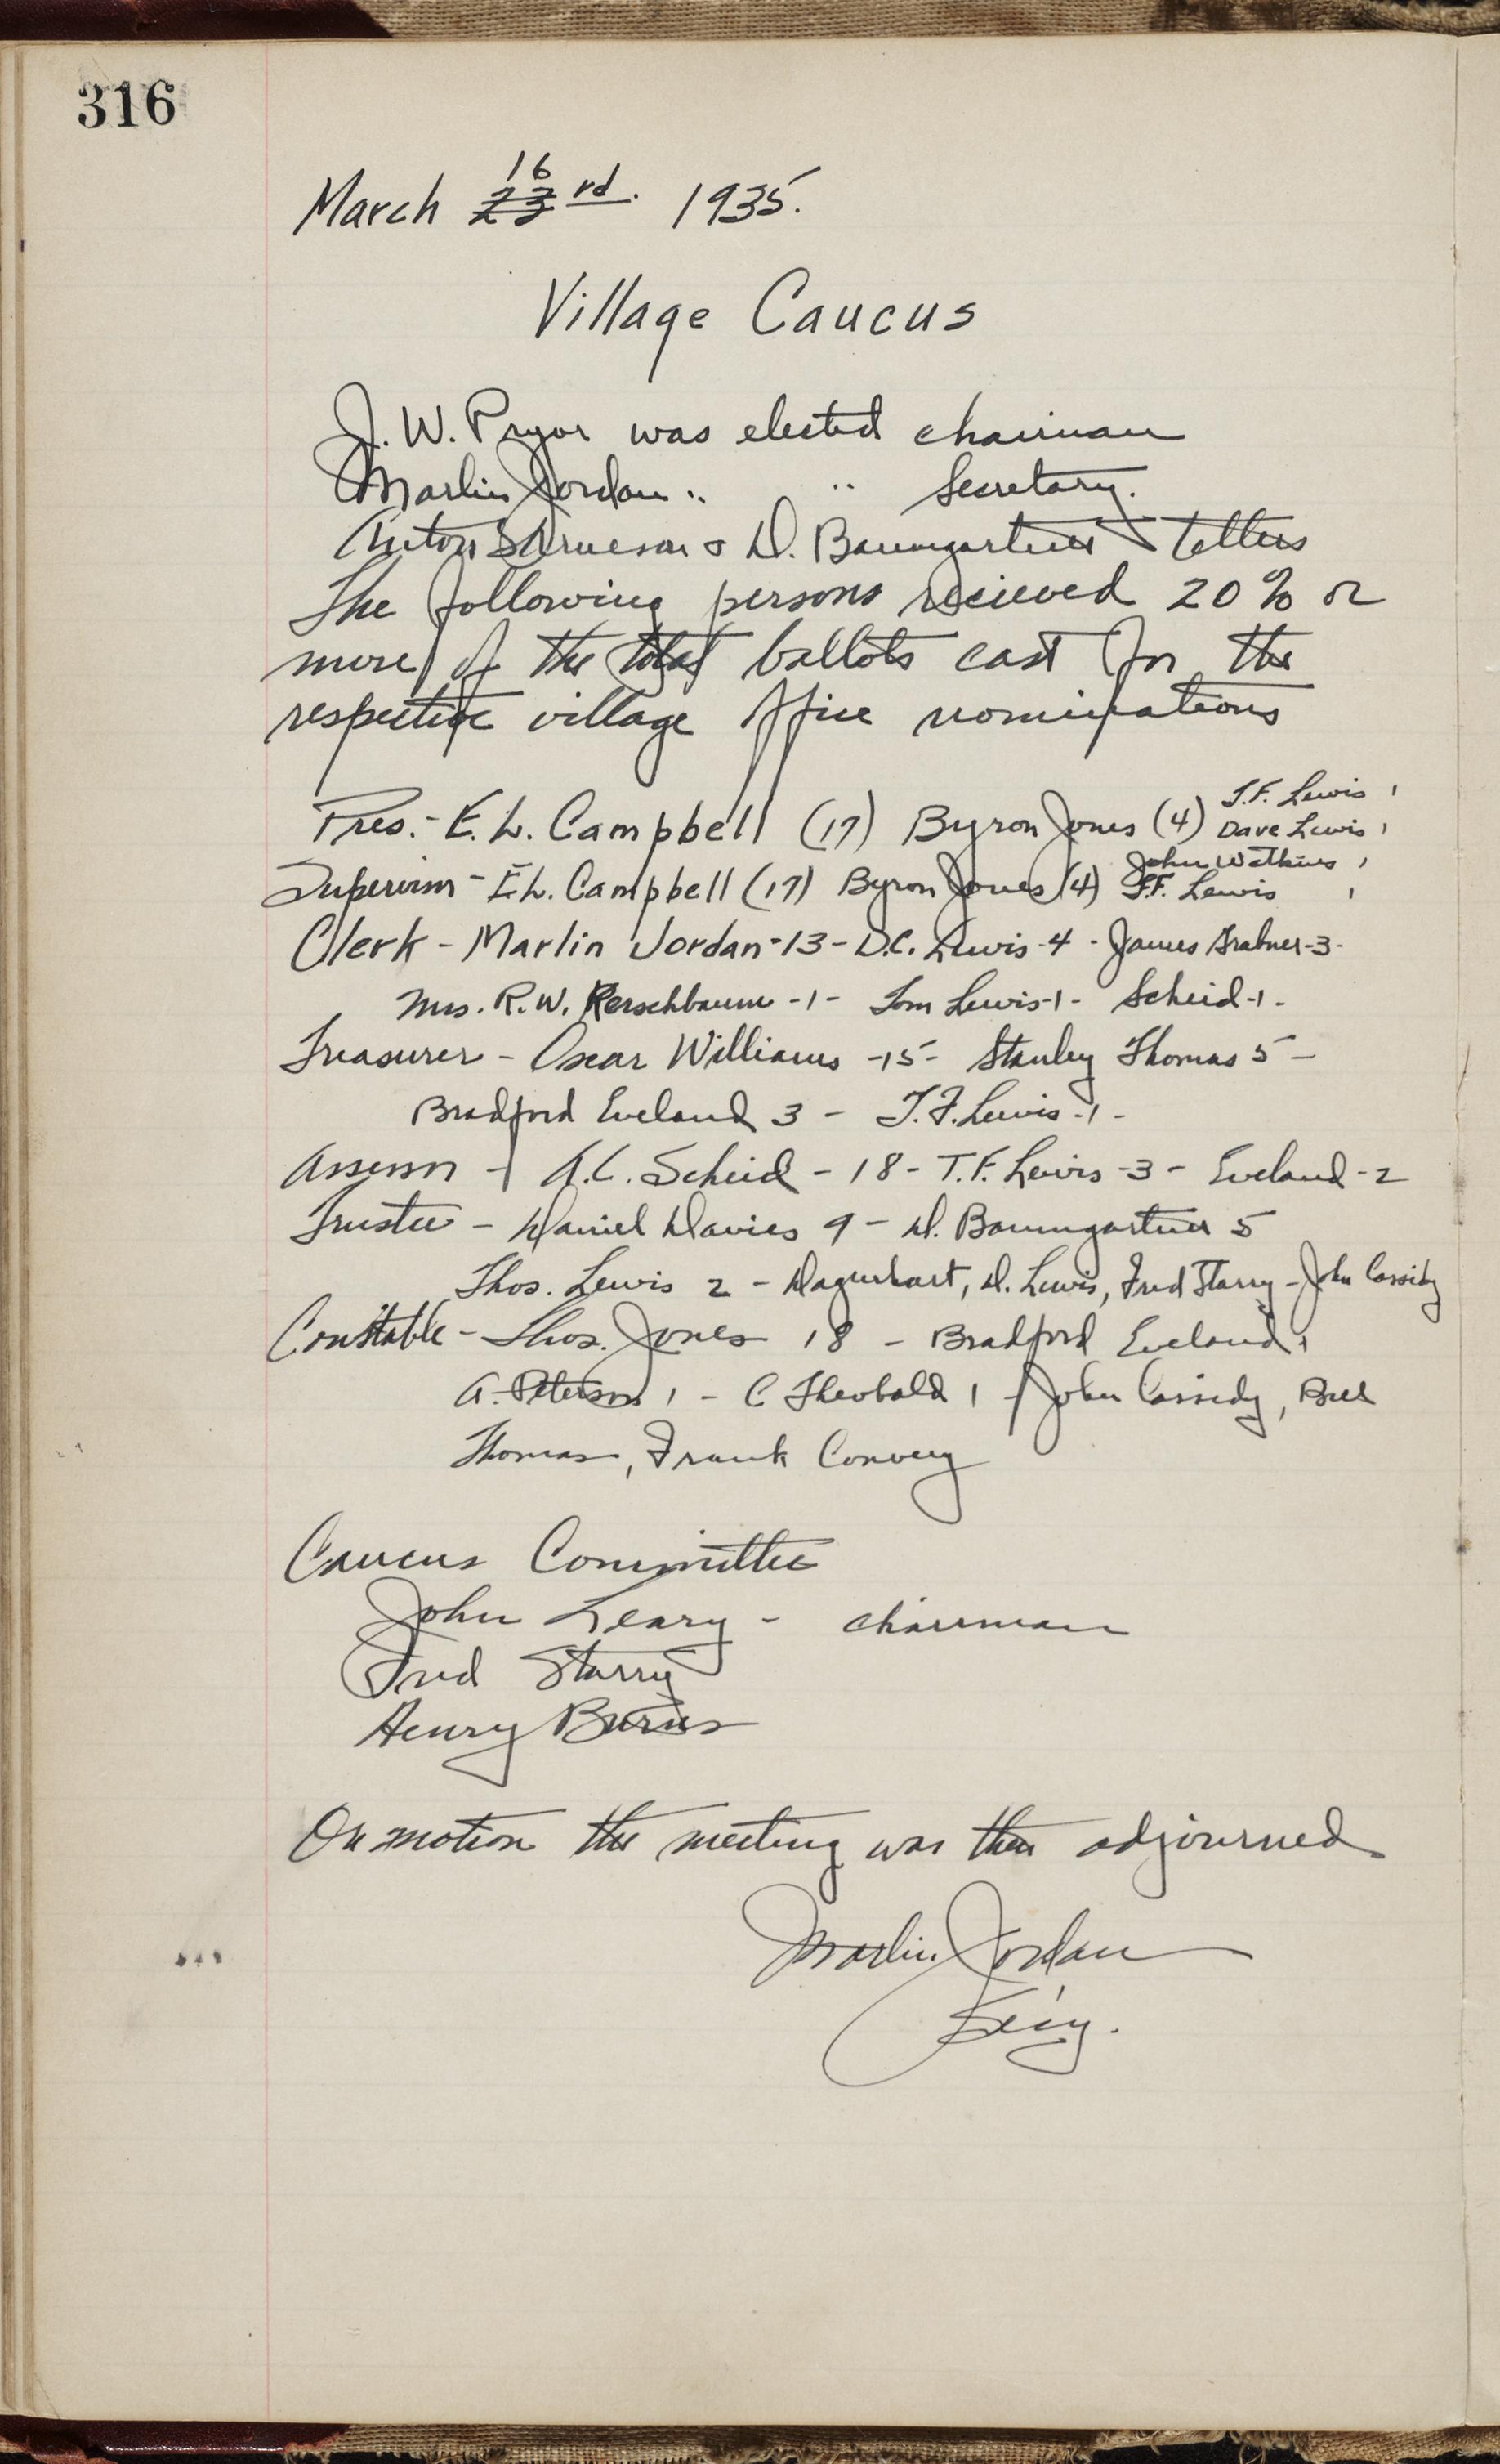 316
March 16 23 rd. 1935.
Village Caucus
J. W. Pryor was elected chairman
Marlin Jordan " " Secretary.
Anton & D. Baumgartner " Tellers
The following persons recieved 20% or
more of the total ballots cast for the
respective village office nominations
T.F. Lewis 1
Pres. - E. L. Campbell (17) Byron Jones (4) Dave Lewis 1
John Watkins 1
Supervisor - E. L. Campbell (17) Byron Jones (4) T.F. Lewis 1
Clerk - Marlin Jordan - 13 - D.C. Lewis - 4 - James Grabner - 3 -
Mrs. R. W. Kerschbaum - 1 - Tom Lewis - 1 - Scheid - 1 -
Treasurer - Oscar Williams - 15 - Stanley Thomas 5 -
Bradford Eveland 3 - T. F. Lewis - 1 -
Assessor - A. C. Scheid - 18 - T. F. Lewis - 3 - Eveland - 2
Trustee - Daniel Davies 9 - D. Baumgartner 5
Thos. Lewis 2 - Dagenhart, D. Lewis, Fred Starry - John Cassidy
Constable - Thos. Jones 18 - Bradford Eveland 1
A. Peterson 1 - C Theobald 1 - John Cassidy, Bill
Thomas, Frank Convey
Caucus Committee
John Leary - chairman
Fred Starry
Henry Burns
On motion the meeting was then adjourned
Marlin Jordan
Sec'y.